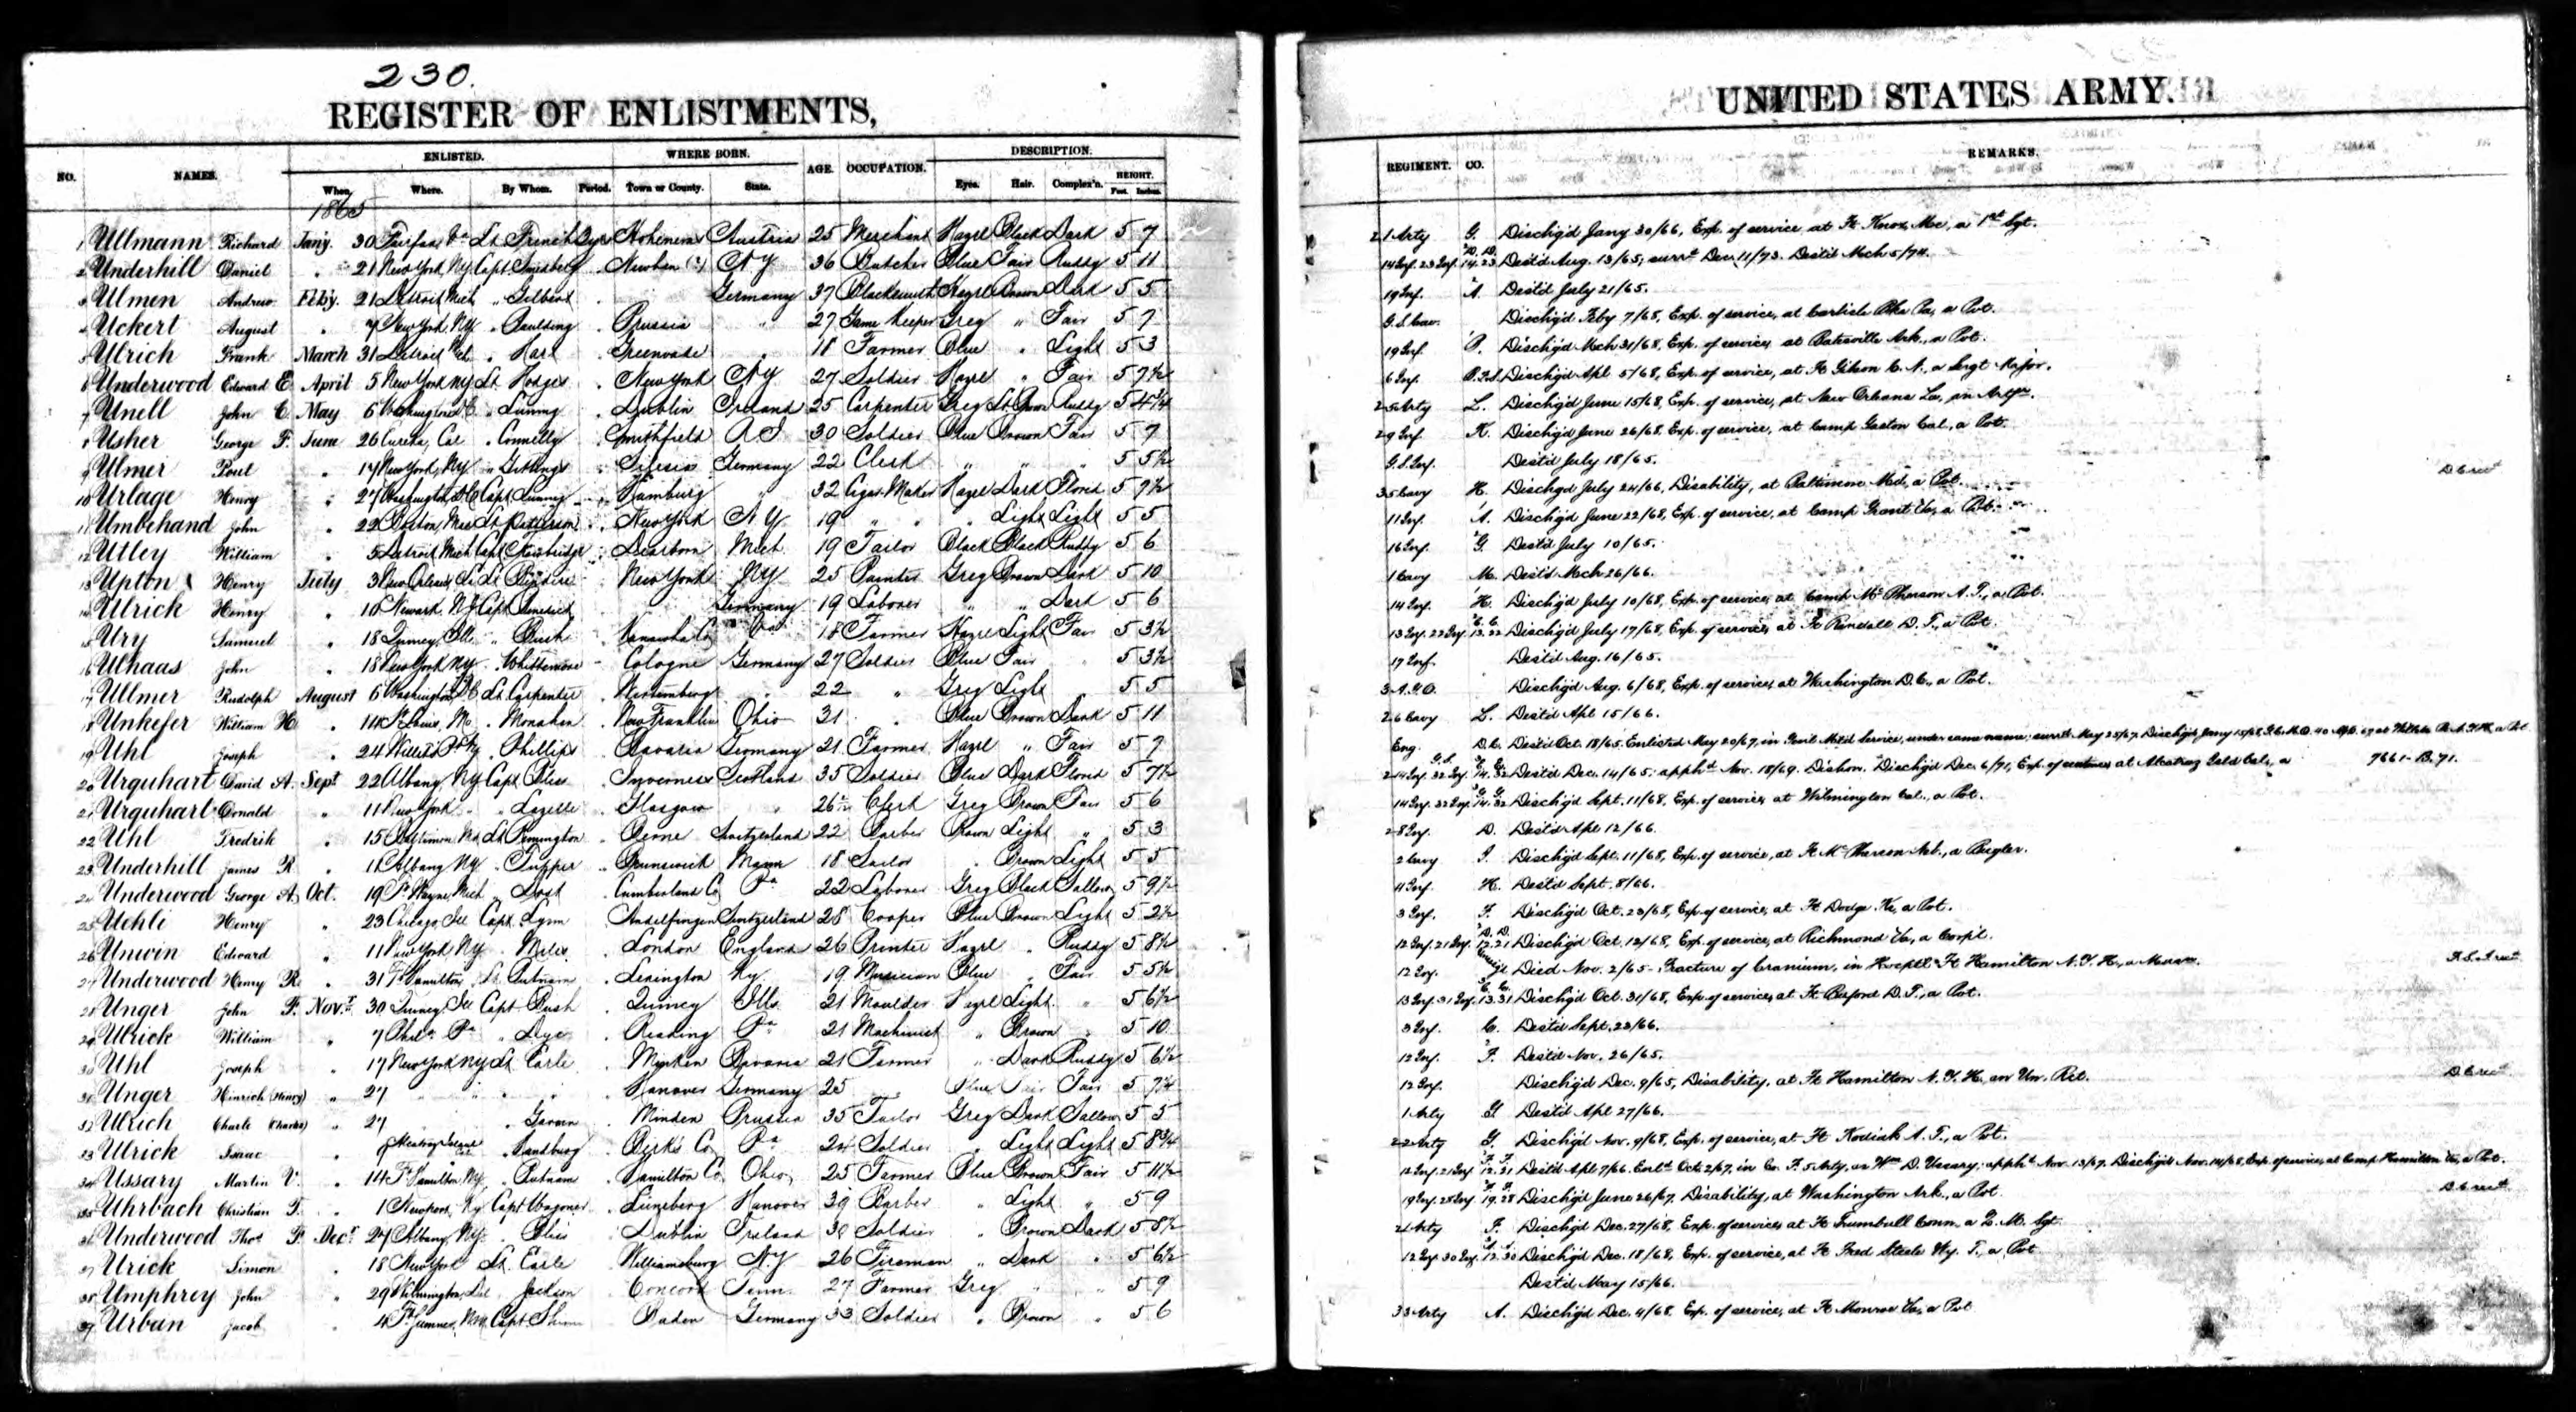 230.
REGISTER OF ENLISTMENTS,
UNITED STATES ARMY.
NO. NAMES. ENLISTED. WHERE BORN. AGE. OCCUPATION. DESCRIPTION. REGIMENT. CO. REMARKS.
When. Where. By Whom. Period. Town or County. State. Eyes. Hair. Complex'n. HEIGHT. Feet. Inches.
1865
1 Ullmann Richard Jan'y. 30 Fairfax, Va Lt. French 2 yrs Hohenems Austria 25 Merchant Hazel Black Dark 5 7 2 1 Arty G. Disch'g'd Jany 30/66, Exp. of service, at Ft. Knox, Me, a 1st Sgt.
2 Underhill Daniel " 21 New York, NY Capt. N.Y 36 Butcher Blue Fair Ruddy 5 11 14 Inf. 23 Inf. D. D. 14. 23 Des't'd Aug. 13/65; surrd Dec. 11/73. Des't'd Mch 5/74.
3 Ulmen Andrew Feb'y. 21 Detroit Mich " Gilbert Germany 37 Blacksmith Hazel Brown Dark 5 5 19 Inf. A. Des't'd July 21/65.
4 Uckert August " 7 New York, NY " Paulding Prussia " 27 Game Keeper Grey " Fair 5 7 G.S. Cav. Disch'g'd Feby 7/68, Exp. of service, at Carlisle Bks Pa, a Pvt.
5 Ulrich Frank March 31 Detroit " 18 Farmer Blue " Light 5 3 19 Inf. Disch'g'd Mch 31/68, Exp. of service, at Batesville Ark., a Pvt.
6 Underwood Edward E. April 5 New York NY Lt. Hodges New York N.Y 27 Soldier Hazel " Fair 5 7½ 6 Inf. Disch'g'd Apl 5/68, Exp. of service, at Ft. Gibson C. N., a Sergt Major.
7 Unell John C. May 6 Washington D.C. " Dublin Ireland 25 Carpenter Grey Lt. Brown Ruddy 5 4¾ 2 5 Arty L. Disch'g'd June 15/68, Exp. of service, at New Orleans La, an Artfr.
8 Usher George F. June 26 Eureka, Cal " Connelly Smithfield R.I 30 Soldier Blue Brown Fair 5 7 2 9 Inf. K. Disch'g'd June 26/68, Exp. of service, at Camp Gaston Cal., a Pvt.
9 Ulmer Paul " 17 New York, NY " Gittings Silesia Germany 22 Clerk " " " 5 5½ G.S. Inf. Des't'd July 18/65.
10 Urlage Henry " 27 Washington, D.C Capt. Hamburg " 32 Cigar Maker Hazel Dark Florid 5 7½ 3 5 Cavy H. Disch'g'd July 24/66, Disability, at Baltimore Md., a Pvt.
11 Umbehand John " 22 Boston, Mas Lt. Patterson New York N.Y 19 " " Light Light 5 5 11 Inf. A. Disch'g'd June 22/68, Exp. of service, at Camp Grant Va, a Pvt.
12 Utley William " 5 Detroit Mich Capt. Dearborn Mich 19 Tailor Black Black Ruddy 5 6 16 Inf. G. Des't'd July 10/65.
13 Upton Henry July 3 New Orleans La Lt. New York NY 25 Painter Grey Brown Dark 5 10 1 Cavy M. Des't'd Mch 26/66.
14 Ulrick Henry " 10 Newark, NJ Capt. Germany 19 Laborer " " Dark 5 6 14 Inf. H. Disch'g'd July 10/68, Exp. of service, at Camp McPherson A. T., a Pvt.
15 Ury Samuel " 18 Quincy, Ills " Bush Kanawha Co Va 18 Farmer Hazel Light Fair 5 3½ 13 Inf. 22 Inf. C. C. 13. 22 Disch'g'd July 17/68, Exp. of service, at Ft. Randall D. T., a Pvt.
16 Ulhaas John " 18 New York NY " Whittemore Cologne Germany 27 Soldier Blue Fair " 5 3½ 17 Inf. Des't'd Aug. 16/65.
17 Ullmer Rudolph August 6 Washington D.C Lt. Carpenter Wirtemberg " 22 " Grey Light 5 5 Disch'g'd Aug. 6/68, Exp. of service, at Washington D.C., a Pvt.
18 Unkefer William H " 14 St. Louis, Mo " Monahan New Franklin Ohio 31 " Blue Brown Dark 5 11 2 6 Cavy L. Des't'd Apl 15/66.
19 Uhl Joseph " 24 Willets Pt NY " Phillips Bavaria Germany 21 Farmer Hazel " Fair 5 7 Eng. Des't'd Oct. 18/65. Enlisted May 20/67, in Genl Mtd Service, under same name; surrd May 25/67.
20 Urquhart David A. Sept 22 Albany, NY Capt. Bliss Inverness Scotland 35 Soldier Blue Dark Florid 5 7½ 2 14 Inf. 32 Inf. G. G. 14. 32 Des't'd Dec. 14/65; apphd Nov. 18/69. Dishon. Disch'g'd Dec. 6/71, Exp. of sentence, at Alcatraz Isld Cal., a 7661-B.71.
21 Urquhart Donald " 11 New York " " Lazelle Glasgow " 26 Clerk Grey Brown Fair 5 6 14 Inf. 32 Inf. G. G. 14. 32 Disch'g'd Sept. 11/68, Exp. of service, at Wilmington Cal., a Pvt.
22 Uhl Fredrik " 15 Baltimore Md Lt. Pennington Berne Switzerland 22 Barber Brown Light " 5 3 2 8 Inf. D. Des't'd Apl 12/66.
23 Underhill James R " 11 Albany NY " Tupper Brunswick Maine 18 Sailor " Brown Light 5 5 2 Cavy I. Disch'g'd Sept. 11/68, Exp. of service, at Ft. McPherson Neb., a Bugler.
24 Underwood George A. Oct. 19 Ft. Wayne, Mich " Cumberland Co Pa 22 Laborer Grey Black Sallow 5 9½ 11 Inf. H. Des't'd Sept. 8/66.
25 Uehli Henry " 23 Chicago, Ill Capt. Lynn Andelfingen Switzerland 28 Cooper Blue Brown Light 5 2½ 3 Inf. F. Disch'g'd Oct. 23/68, Exp. of service, at Ft. Dodge Ks, a Pvt.
26 Unwin Edward " 11 New York NY " Miles London England 26 Printer Hazel " Ruddy 5 8½ 12 Inf. 21 Inf. D. D. 12. 21 Disch'g'd Oct. 12/68, Exp. of service, at Richmond Va, a Corpl.
27 Underwood Henry R. " 31 Ft. Hamilton Lt. Putnam Lexington Ky. 19 Musician Blue " Fair 5 5½ 12 Inf. Died Nov. 2/65 - Fracture of Cranium, in Hosptl Ft. Hamilton N.Y.H., a Musn.
28 Unger John F. Novr 30 Quincy Ill Capt Bush Quincy Ills 21 Moulder Hazel Light " 5 6½ 13 Inf. 31 Inf. C. C. 13. 31 Disch'g'd Oct. 31/68, Exp. of service, at Ft. Buford D. T., a Pvt.
29 Ulrick William " 7 Phila Pa " Dye Reading Pa 21 Machinist " Brown " 5 10 3 Inf. C. Des't'd Sept. 23/66.
30 Uhl Joseph " 17 New York NY Lt. Earle Bavaria 21 Farmer " Dark Ruddy 5 6½ 12 Inf. F. Des't'd Nov. 26/65.
31 Unger Hinrich (Henry) " 27 " " " Hanover Germany 25 Blue Fair Fair 5 7¼ 12 Inf. Disch'g'd Dec. 9/65, Disability, at Ft. Hamilton N. Y. H. an Un. Rct.
32 Ulrich Charle (Charles) " 27 " " Minden Prussia 35 Tailor Grey Dark Sallow 5 5 1 Arty G Des't'd Apl 27/66.
33 Ulrick Isaac " 9 Alcatraz Island " Sandburg Berks Co Pa 24 Soldier " Light Light 5 8¾ 2 2 Arty G. Disch'g'd Nov. 9/68, Exp. of service, at Ft. Kodiak A. T., a Pvt.
34 Ussary Martin V. " 14 Ft. Hamilton NY " Putnam Hamilton Co Ohio 25 Farmer Blue Brown Fair 5 11½ 12 Inf. 21 Inf F. F. 12. 21 Des't'd Apl 7/66. Enltd Oct. 2/67, in Co. F. 5 Arty, as Wm D. Ussary; apphd Nov. 13/67. Disch'g'd Nov. 14/68, Exp. of service, at Camp Hamilton Va, a Pvt.
35 Uhrbach Christian F. " 1 Newport, Ky Capt Wagoner Luneberg Hanover 39 Barber " Light " 5 9 19 Inf. 28 Inf F. F. 19. 28 Disch'g'd June 26/67, Disability, at Washington Ark., a Pvt.
36 Underwood Thos F. Decr 27 Albany NY " Bliss Dublin Ireland 30 Soldier " Brown Dark 5 8½ 2 Arty F. Disch'g'd Dec. 27/68, Exp. of service, at Ft. Trumbull Conn, a Q. M. Sgt.
37 Urick Simon " 18 New York Lt. Earle Williamsburg N.Y 26 Fireman " Dark " 5 6½ 12 Inf. 30 Inf. 12. 30 Disch'g'd Dec. 18/68, Exp. of service, at Ft. Fred Steele Wy. T., a Pvt
38 Umphrey John " 29 Wilmington, Del " Jackson Concord Tenn. 27 Farmer Grey " " 5 9 Des't'd May 15/66.
39 Urban Jacob " 4 Ft. Sumner, N.M. Capt. Baden Germany 33 Soldier " Brown " 5 6 3 3 Arty A. Disch'g'd Dec. 4/68, Exp. of service, at Ft. Monroe Va, a Pvt